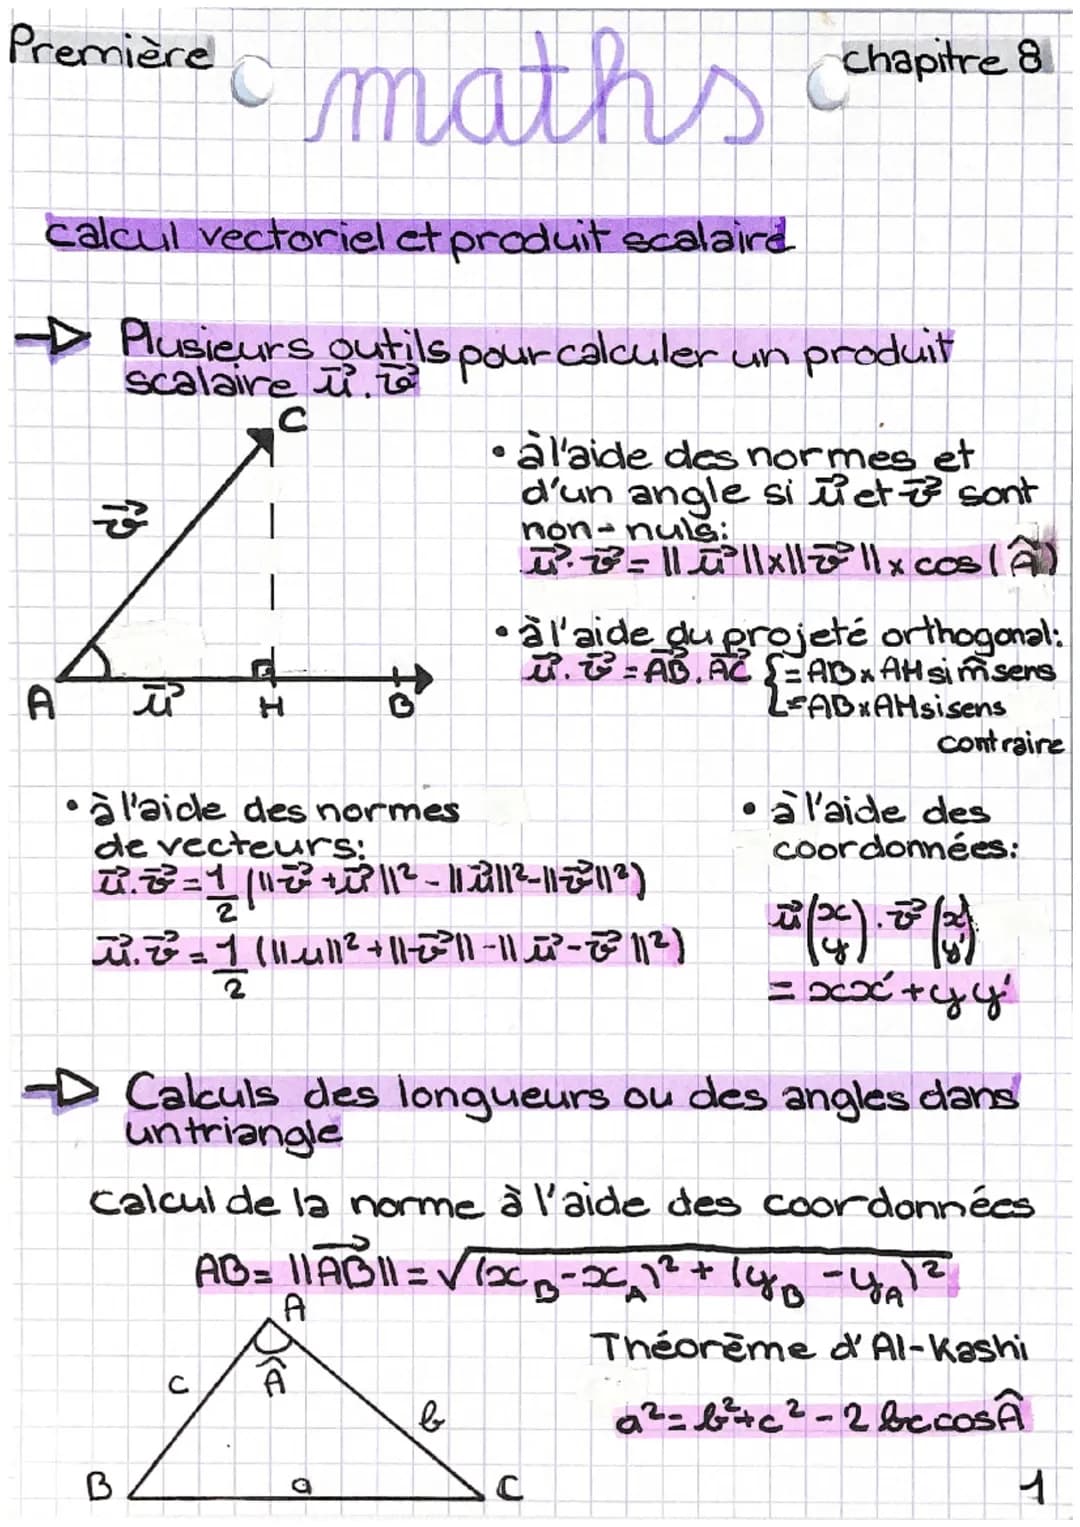 Première
maths
chapitre 8
calcul vectoriel et produit scalaire
Plusieurs outils pour calculer un produit
scalaire u⃗.v⃗
C
v⃗
A
u⃗
H
B
• à l'aide des normes et
d'un angle si u⃗ et v⃗ sont
non-nuls:
u⃗.v⃗ = ||u⃗||x||v⃗||x cos(Â)
• à l'aide du projeté orthogonal:
u⃗.v⃗ = AB⃗.AC⃗ { = AB x AH si m̂ sens
= AB x AH si sens
contraire
• à l'aide des normes
de vecteurs:
u⃗.v⃗ = 1/2 (||v⃗ + u⃗||² - ||u⃗||² - ||v⃗||²)
u⃗.v⃗ = 1/2 (||u||² + ||v⃗|| - ||u⃗ - v⃗||²)
• à l'aide des
coordonnées:
u⃗(x y).v⃗(x' y')
= xx' + yy'
Calculs des longueurs ou des angles dans
un triangle
calcul de la norme à l'aide des coordonnées
AB = ||AB⃗|| = √(x_B - x_A)² + (y_B - y_A)²
A
Â
c
b
B
a
C
Théorème d'Al-Kashi
a² = b² + c² - 2 bc cos Â
1